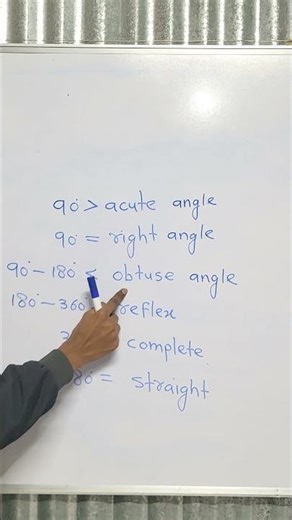 90° > acute angle
90° = right angle
90° - 180° < obtuse angle
180° - 360° reflex
complete
80° = straight